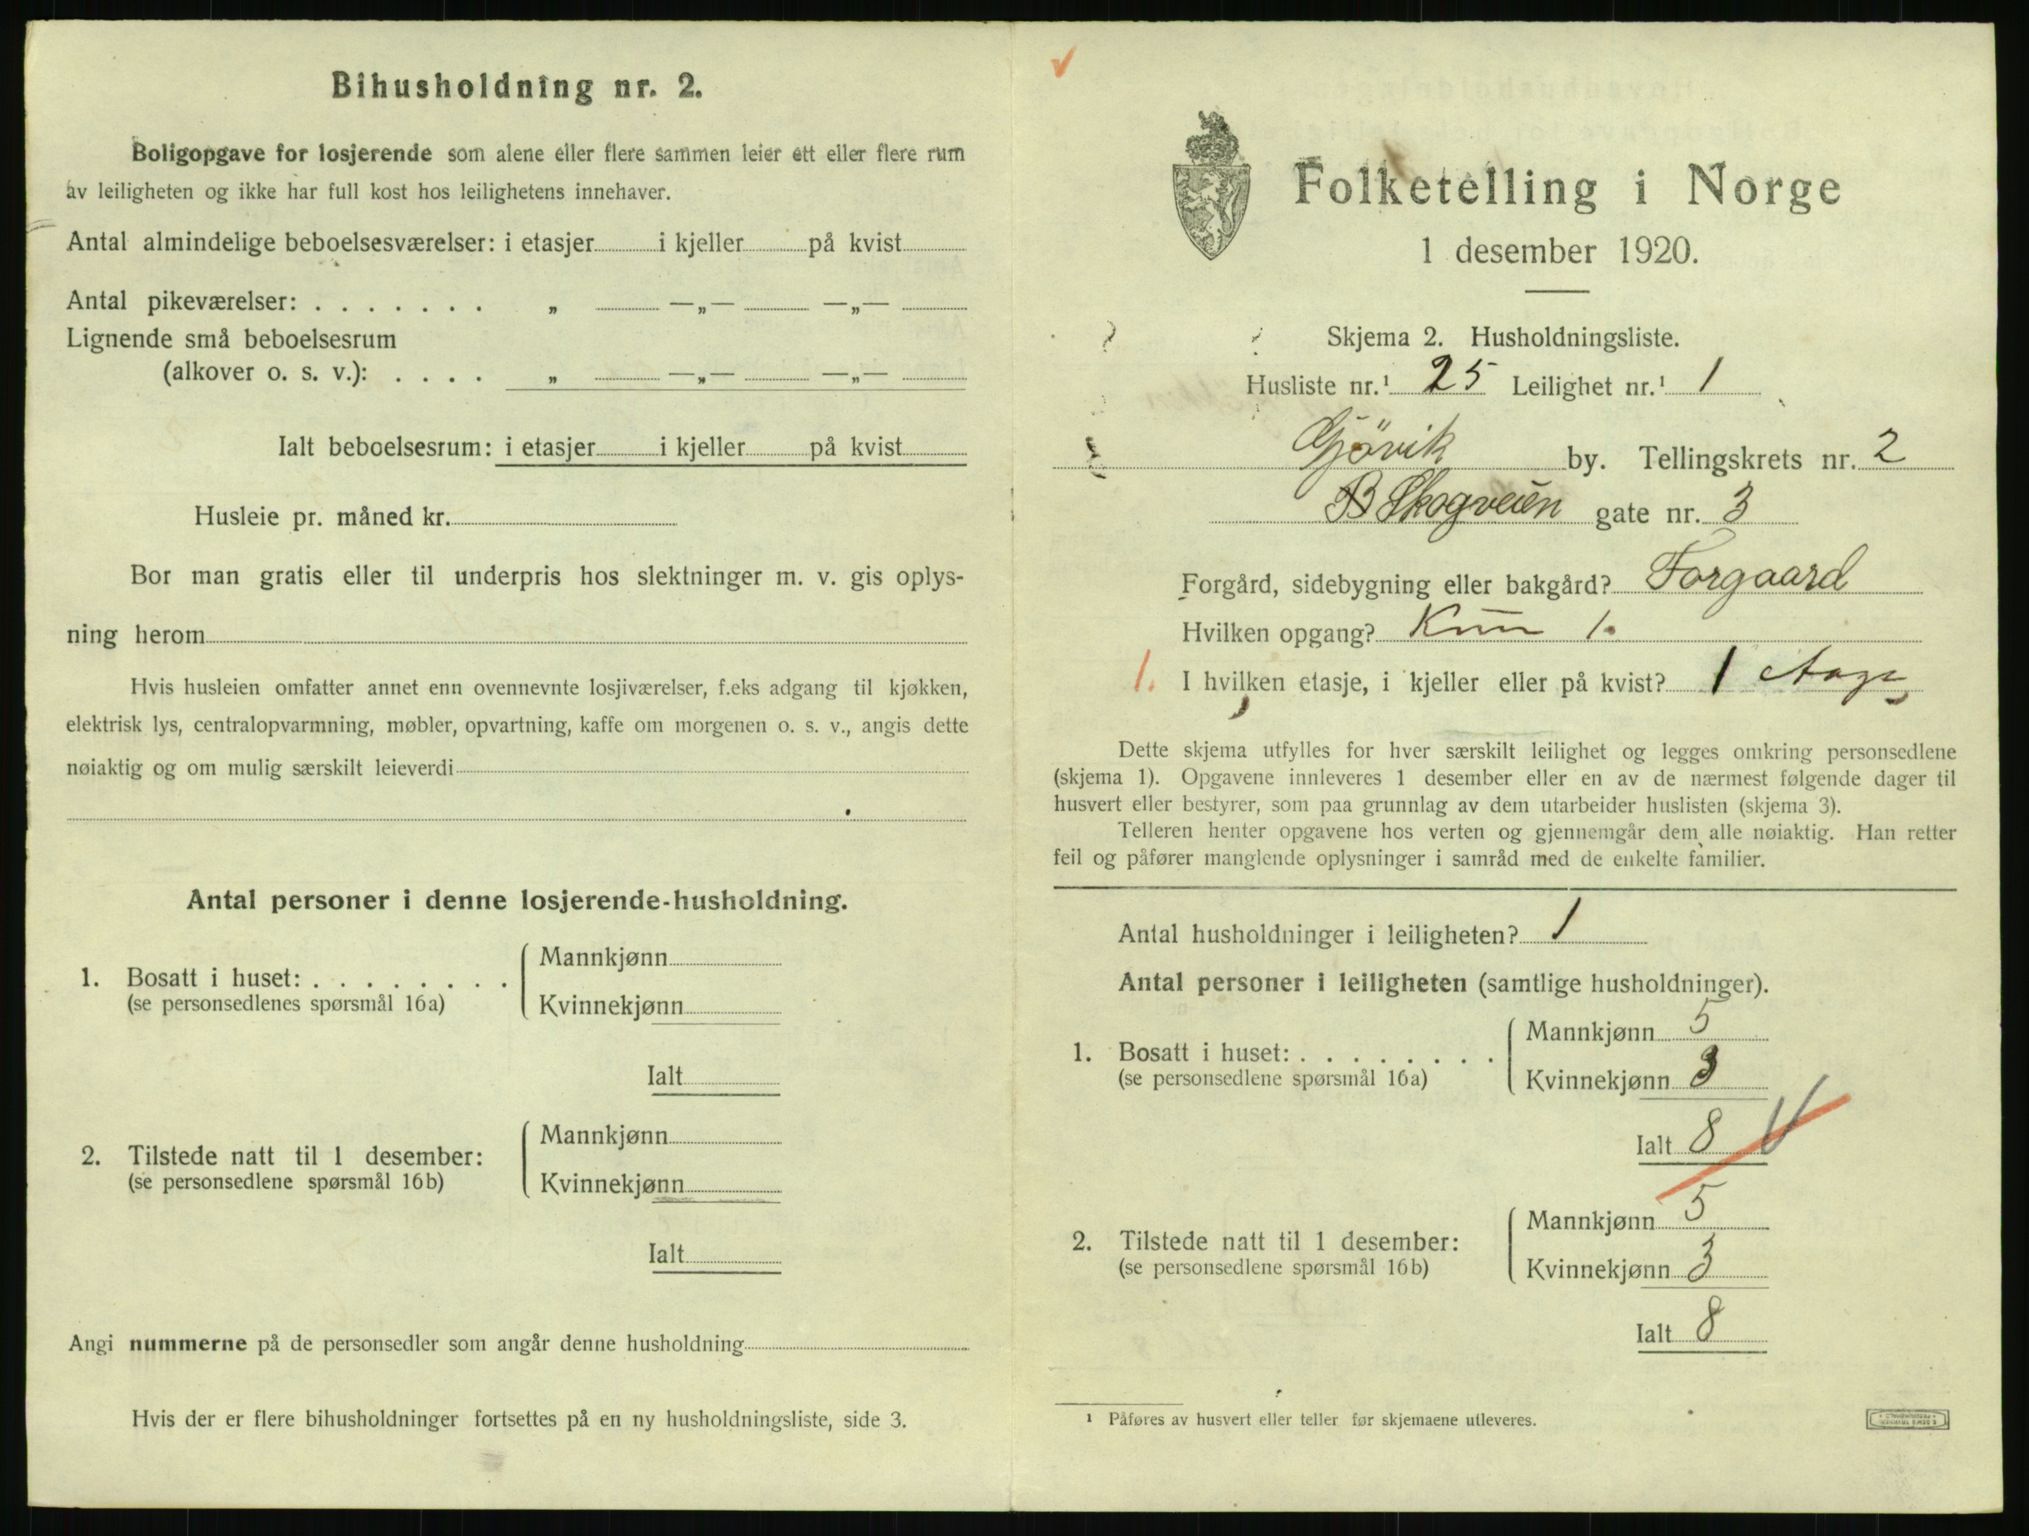 Bihusholdning nr. 2.
Boligopgave for losjerende som alene eller flere sammen leier ett eller flere rum
av leiligheten og ikke har full kost hos leilighetens innehaver.
Antal almindelige beboelsesværelser: i etasjer i kjeller på kvist
Antal pikeværelser: . . . . . . . „ —„— —„—
Lignende små beboelsesrum
(alkover o. s. v.): . . . . „ —„— —„—
Ialt beboelsesrum: i etasjer i kjeller på kvist
Husleie pr. måned kr.
Bor man gratis eller til underpris hos slektninger m. v. gis oplys-
ning herom
Hvis husleien omfatter annet enn ovennevnte losjiværelser, f.eks adgang til kjøkken,
elektrisk lys, centralopvarmning, møbler, opvartning, kaffe om morgenen o. s. v., angis dette
nøiaktig og om mulig særskilt leieverdi
Antal personer i denne losjerende-husholdning.
1. Bosatt i huset: . . . . . . . .
(se personsedlenes spørsmål 16a)
Mannkjønn
Kvinnekjønn
Ialt
2. Tilstede natt til 1 desember:
(se personsedlene spørsmål 16b)
Mannkjønn
Kvinnekjønn
Ialt
Angi nummerne på de personsedler som angår denne husholdning
Hvis der er flere bihusholdninger fortsettes på en ny husholdningsliste, side 3.
Folketelling i Norge
1 desember 1920.
Skjema 2. Husholdningsliste.
Husliste nr.¹ 25 Leilighet nr.¹ 1
Gjøvik by. Tellingskrets nr. 2
B Skogveien gate nr. 3
Forgård, sidebygning eller bakgård? Forgaard
Hvilken opgang? Kun 1.
1. I hvilken etasje, i kjeller eller på kvist? 1
Dette skjema utfylles for hver særskilt leilighet og legges omkring personsedlene
(skjema 1). Opgavene innleveres 1 desember eller en av de nærmest følgende dager til
husvert eller bestyrer, som paa grunnlag av dem utarbeider huslisten (skjema 3).
Telleren henter opgavene hos verten og gjennemgår dem alle nøiaktig. Han retter
feil og påfører manglende oplysninger i samråd med de enkelte familier.
Antal husholdninger i leiligheten? 1
Antal personer i leiligheten (samtlige husholdninger).
1. Bosatt i huset: . . . . . . . .
(se personsedlene spørsmål 16a)
Mannkjønn 5
Kvinnekjønn 3
Ialt 8
2. Tilstede natt til 1 desember:
(se personsedlene spørsmål 16b)
Mannkjønn 5
Kvinnekjønn 3
Ialt 8
¹ Påføres av husvert eller teller før skjemaene utleveres.